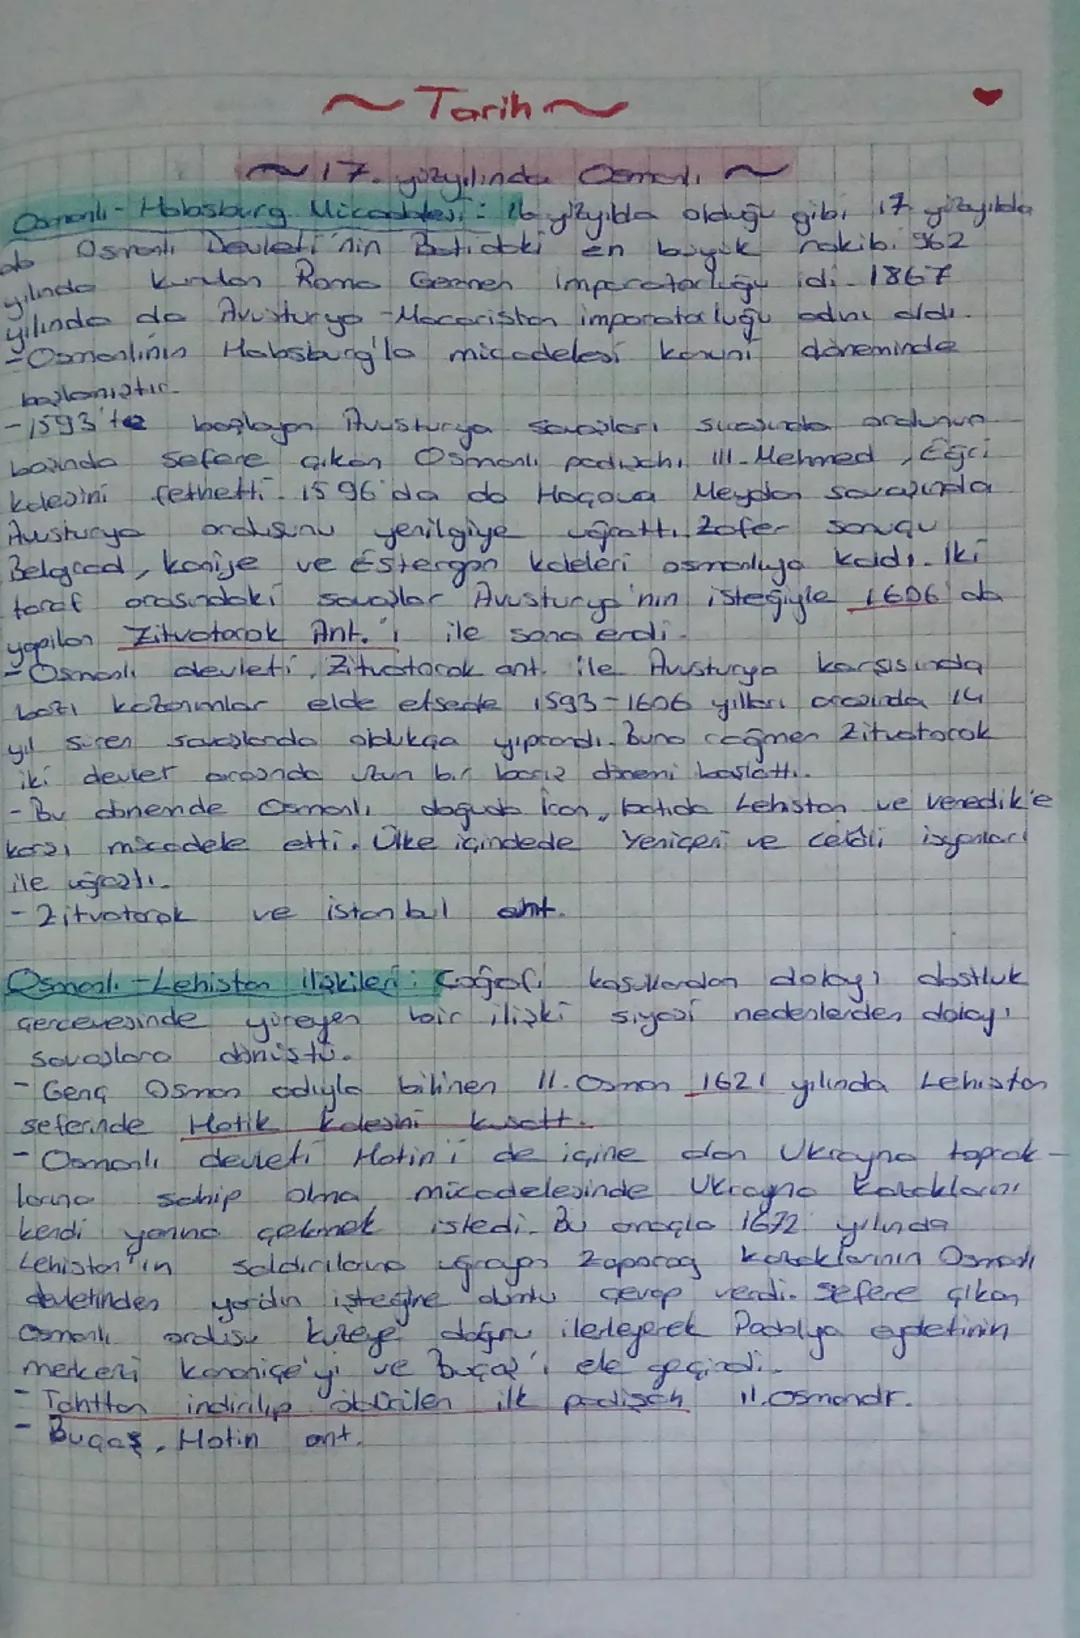 ~ Tarih ~
~ 17. yüzyılında Osmanlı ~
Osmanlı - Habsburg Mücadelesi : 16 yüzyılda olduğu gibi 17 yüzyılda
da Osmanlı Devleti'nin Batıdaki en büyük rakibi 962
yılında kurulan Roma Germen imparatorluğu idi. 1867
yılında da Avusturya - Macaristan imparatorluğu adını aldı.
- Osmanlının Habsburg'la mücadelesi kanuni döneminde
başlamıştır.
- 1593'te başlayan Avusturya savaşları sırasında ordunun
başında sefere çıkan Osmanlı padişahı III. Mehmed , Eğri
kalesini fethetti. 1596'da da Haçova Meydan savaşında
Avusturya ordusunu yenilgiye uğrattı. Zafer sonuçu
Belgrad, kanije ve Estergon kaleleri osmanlıya kaldı. İki
taraf arasındaki savaşlar Avusturya'nın isteğiyle 1606'da
yapılan Zitvatorok Ant.'ı ile sona erdi.
- Osmanlı devleti, Zitvatorok ant. ile Avusturya karşısında
bazı kazanımlar elde etsede 1593-1606 yılları arasında 14
yıl süren savaşlarda oldukça yıprandı. Buna rağmen Zitvatorok
iki devlet arasında uzun bir barış dönemi başlattı.
- Bu dönemde Osmanlı doğuda İran, batıda Lehistan ve venedik'e
karşı mücadele etti. Ülke içindede Yeniçeri ve celali isyanları
ile uğraştı.
- Zitvatorok ve istanbul ant.
Osmanlı - Lehistan ilişkileri : Coğrafi dolayı dostluk
çerçevesinde yürüyen bir ilişki siyasi nedenlerden dolayı
savaşlara dönüştü.
- Genç Osman adıyla bilinen II. Osman 1621 yılında Lehistan
seferinde Hotik kalesini kuşattı.
- Osmanlı devleti Hotin'i de içine alan Ukrayna toprak-
larına sahip olma mücadelesinde Ukrayna Kazaklarını
kendi yanına çekmek istedi. Bu amaçla 1672 yılında
Lehistan'ın saldırılarına uğrayan Zaporog kazaklarının Osmanlı
devletinden yardım isteğine olumlu cevap verdi. Sefere çıkan
Osmanlı ordusu kuzeye doğru ilerleyerek Padolya eyaletinin
merkezi kamaniçe'yi ve Bucaş'ı ele geçirdi.
- Tahttan indirilip öldürülen ilk padişah II. Osmandır.
- Bucaş, Hotin ant.